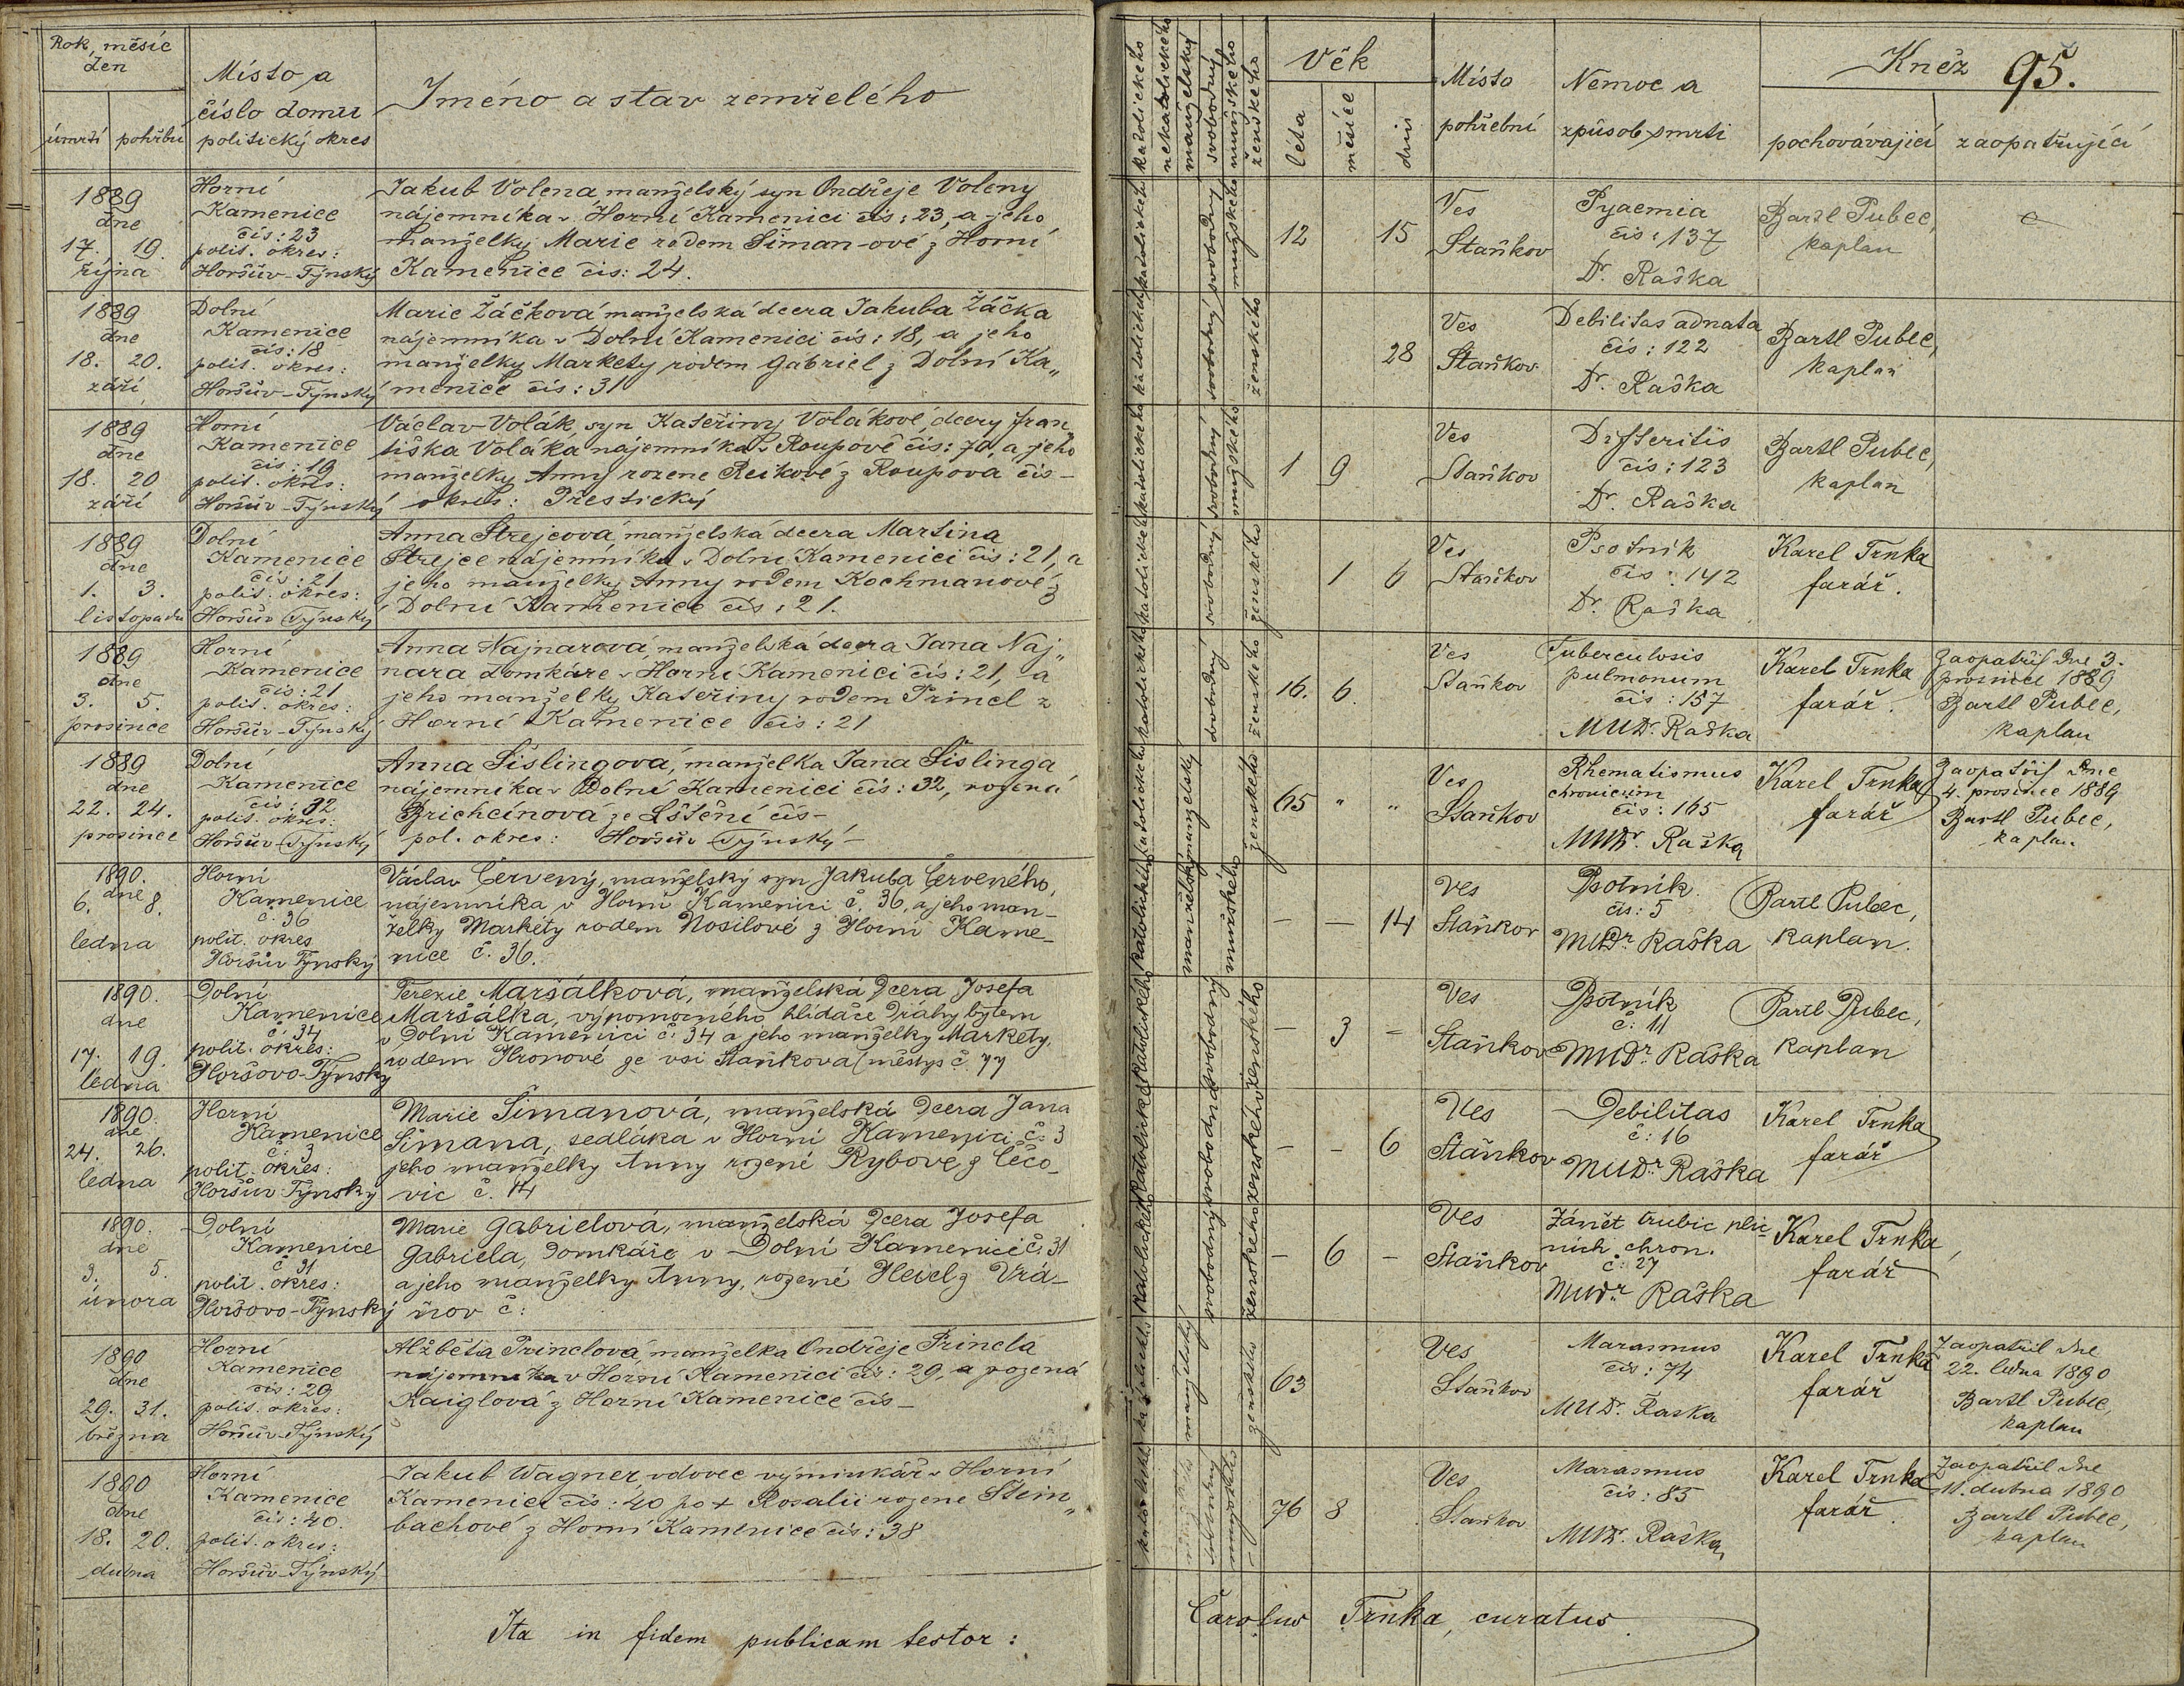 Rok, měsíc
den
úmrtí pohřbu
Místo a
číslo domu
politický okres
Jméno a stav zemřelého
1889
dne
17. 19.
října
Horní
Kamenice
čís: 23
polit. okres:
Horšův-Týnský
Jakub Volena, manželský syn Ondřeje Voleny
nájemníka v Horní Kamenici čís: 23, a jeho
manželky Marie rodem Šiman-ové z Horní
Kamenice čís: 24.
1889
dne
18. 20.
září
Dolní
Kamenice
čís: 18
polit. okres:
Horšův-Týnský
Marie Žáčková manželská dcera Jakuba Žáčka
nájemníka v Dolní Kamenici čís: 18, a jeho
manželky Markety rodem Gabriel z Dolní Ka„
menice čís: 31
1889
dne
18. 20
září
Horní
Kamenice
čís: 19
polit. okres:
Horšův-Týnský
Václav Volák, syn Kateřiny Volákové, dcery Fran„
tiška Voláka nájemníka v Roupově čís: 70, a jeho
manželky Anny rozene Reikové z Roupova čís -
okres: Přestický
1889
dne
1. 3.
listopadu
Dolní
Kamenice
čís: 21
polit. okres:
Horšův Týnský
Anna Strejcová, manželská dcera Martina
Strejce nájemníka v Dolní Kamenici čís: 21, a
jeho manželky Anny rodem Kochmanové z
Dolní Kamenice čís: 21.
1889
dne
3. 5.
prosince
Horní
Kamenice
čís: 21
polit. okres:
Horšův-Týnský
Anna Najnarová, manželská dcera Jana Naj„
nara domkáre v Horní Kamenici čís: 21, a
jeho manželky Kateřiny rodem Princl z
Horní Kamenice čís: 21
1889
dne
22. 24.
prosince
Dolní
Kamenice
čís: 32
polit. okres:
Horšův-Týnský
Anna Šislingova, manželka Jana Šislinga
nájemníka v Dolní Kamenici čís: 32, rozená
Brichcínová ze Lštění čís -
pol. okres: Horšův Týnský -
1890.
dne
6. 8.
ledna
Horní
Kamenice
č. 36
polit. okres
Horšův Týnský
Václav Červený, manželský syn Jakuba Červeného,
nájemníka v Horní Kamenici č. 36, a jeho man-
želky Markéty rodem Nosilové z Horní Kame-
nice č. 36.
1890.
dne
17. 19.
ledna
Dolní
Kamenice
č. 34
polit. okres:
Horšovo-Týnský
Terezie Maršálková, manželská dcera Josefa
Maršálka, výpomocného hlídače dráhy bytem
v Dolní Kamenici č. 34 a jeho manželky Markety,
rodem Hronové ze vsi Staňkova (městys č. 77
1890.
dne
24. 26.
ledna
Horní
Kamenice
č. 3
polit. okres:
Horšův-Týnský
Marie Šimanová, manželská dcera Jana
Šimana, sedláka v Horní Kamenici č. 3
jeho manželky Anny rozené Rybove z Čečo-
vic č. 14
1890.
dne
3. 5.
února
Dolní
Kamenice
č 31
polit. okres:
Horšovo-Týnský
Marie Gabrielová, manželská dcera Josefa
Gabriela, domkáře v Dolní Kamenici č. 31
a jeho manželky Anny, rozené Heidl z Vrá-
nov č:
1890
dne
29. 31.
března
Horní
Kamenice
čís: 29
polit. okres:
Horšův-Týnský
Alžběta Princlová, manželka Ondřeje Princla
nájemníka v Horní Kamenici čís: 29, a rozená
Kaiglová z Horní Kamenice čís -
1890
dne
18. 20.
dubna
Horní
Kamenice
čís: 40.
polit. okres:
Horšův-Týnský
Jakub Wagner, vdovec výminkář v Horní
Kamenici čís: 40 po + Rosalii rozene Stein„
bachové z Horní Kamenice čís: 38
Ita in fidem publicam testor:
katolického
nekatolického
manželský
svobodný
mužského
ženského
Věk
léta
měsíce
dnů
Místo
pohřební
Nemoc a
způsob smrti
Kněz
95.
pochovávající
zaopatřující
katolického svobodný mužského
12 15
Ves
Staňkov
Pyaemia
čís: 137
Dr. Raška
Bartl Pubec,
kaplan
katolického svobodný ženského
28
Ves
Staňkov
Debilitas adnata
čís: 122
Dr. Raška
Bartl Pubec,
kaplan
katolického svobodný mužského
1 9
Ves
Staňkov
Difteritis
čís: 123
Dr. Raška
Bartl Pubec,
kaplan
katolického svobodný ženského
1 6
Ves
Staňkov
Psotník
čís: 142
Dr. Raška
Karel Trnka
farář.
katolického svobodný ženského
16. 6.
Ves
Staňkov
Tuberculosis
pulmonum
čís: 157
MUDr. Raška
Karel Trnka
farář.
Zaopatřil dne 3.
prosince 1889
Bartl Pubec,
kaplan
katolického manželský ženského
65 " "
Ves
Staňkov
Rhematismus
chronicum
čís: 165
MUDr. Raška
Karel Trnka
farář
Zaopatřil dne
4. prosince 1889
Bartl Pubec,
kaplan
katolického manželský mužského
- - 14
Ves
Staňkov
Psotník
čís: 5
MUDr Raška
Bartl Pubec,
kaplan.
katolického svobodný ženského
- 3 -
Ves
Staňkov
Psotník
č: 11
MUDr Raška
Bartl Pubec,
kaplan
katolického svobodna ženského
- - 6
Ves
Staňkov
Debilitas
č: 16
MUDr Raška
Karel Trnka
farář
katolického svobodný ženského
- 6 -
Ves
Staňkov
Zánět trubic plic
ních chron.
č: 27
MUDr Raška
Karel Trnka,
farář
katolického manželský ženského
63
Ves
Staňkov
Marasmus
čís: 74
MUDr. Raska
Karel Trnka
farář
Zaopatřil dne
22. ledna 1890
Bartl Pubec,
kaplan
katolického mužského
76 8
Ves
Staňkov
Marasmus
čís: 85
MUDr. Raška,
Karel Trnka
farář.
Zaopatřil dne
11. dubna 1890
Bartl Pubec,
kaplan
Carolus Trnka, curatus.